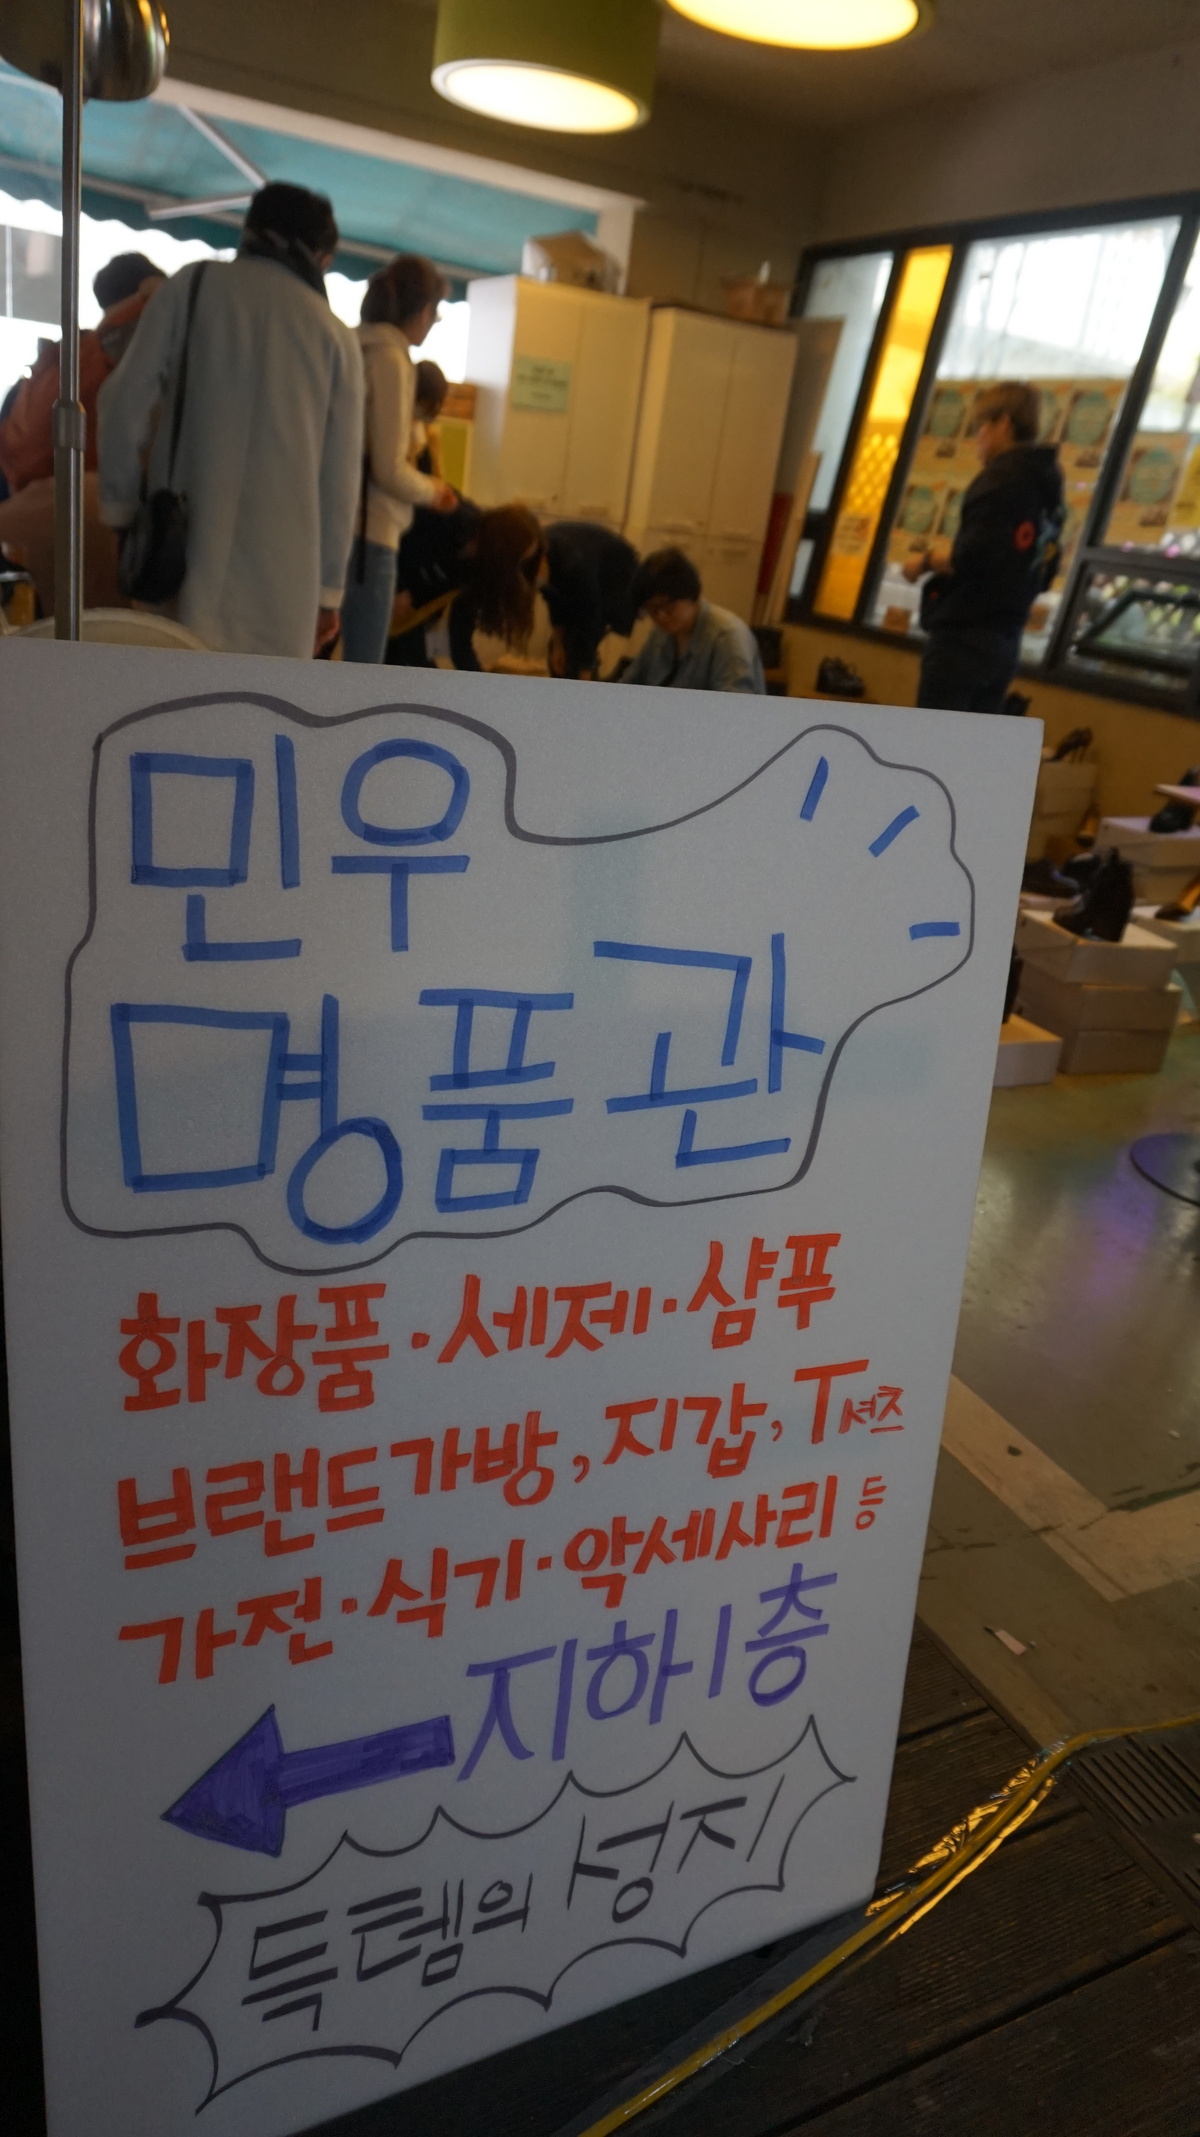 민우
명품관
화장품·세제·샴푸
브랜드가방, 지갑, T셔츠
가전·식기·악세사리 등
지하1층
득템의 성지